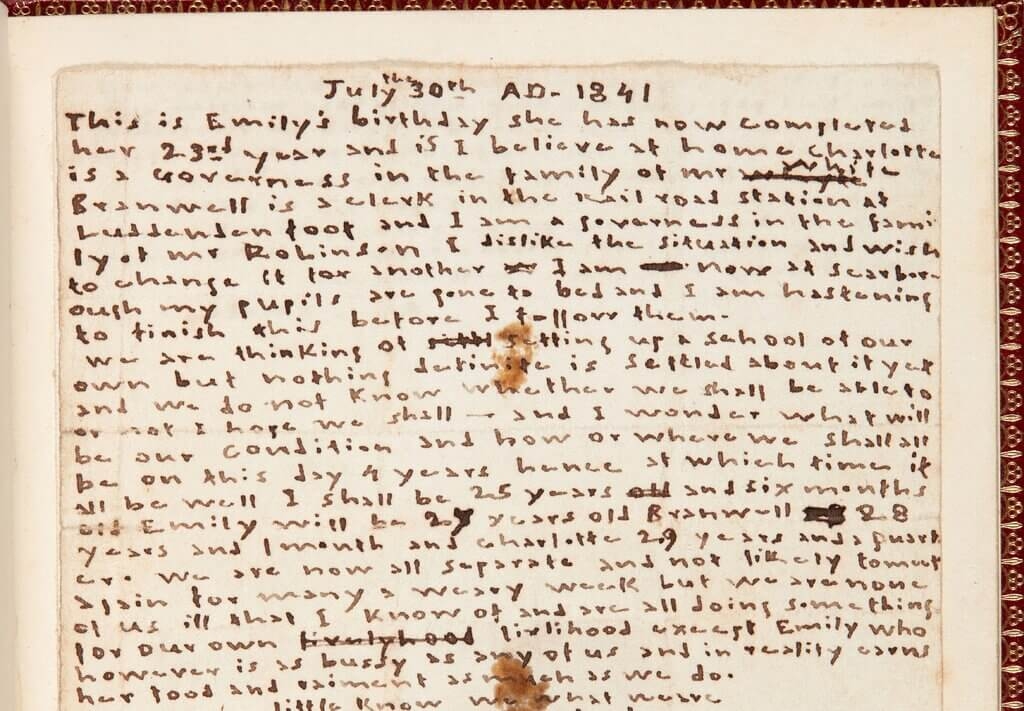 July the 30th AD. 1841
This is Emily's birthday she has now completed
her 23rd year and is I believe at home Charlotte
is a Governess in the family of mr White
Branwell is a clerk in the railroad station at
Luddenden foot and I am a governess in the fami
ly of mr Robinson I dislike the situation and wish
to change it for another I am now at Scarbor-
ough my pupils are gone to bed and I am hastening
to finish this before I follow them-
we are thinking of setting up a school of our
own but nothing definite is settled about it yet
and we do not know whether we shall be able to
or not I hope we shall — and I wonder what will
be our Condition and how or where we shall all
be on this day 4 years hence at which time if
all be well I shall be 25 years and six months
old Emily will be 27 years old Branwell 28
years and 1 month and Charlotte 29 years and a quart
er. We are now all separate and not likely to meet
again for many a weary week but we are none
of us ill that I know of and are all doing something
for our own livlihood except Emily who
however is as bussy as any of us and in reality earns
her food and raiment as much as we do.
little know we what we are